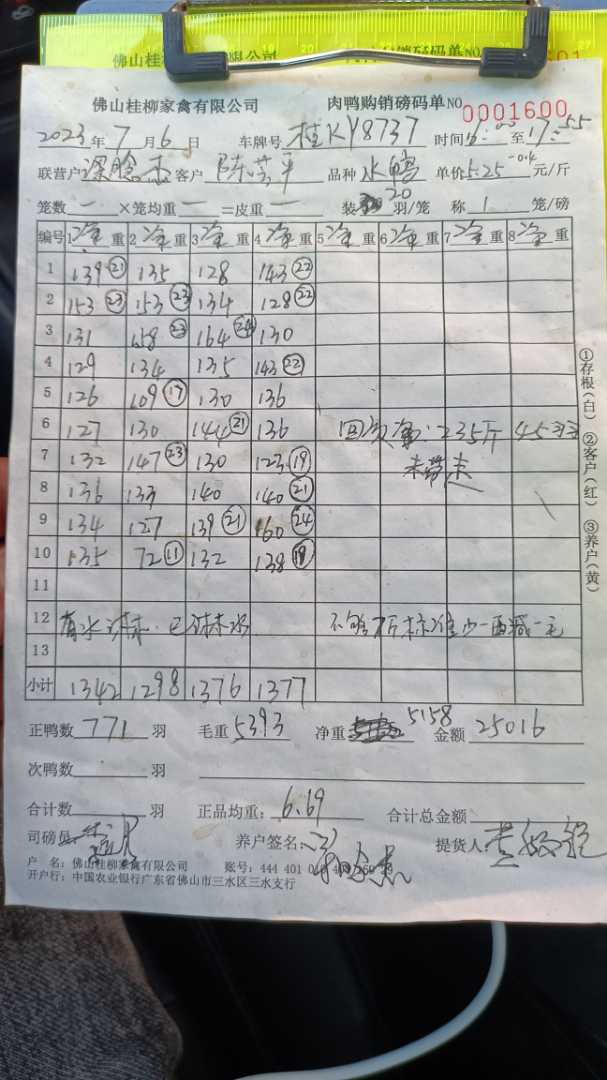 佛山桂柳家禽有限公司 肉鸭购销磅码单NO 0001600
2023年7月6日 车牌号 桂KY8737 时间 至17:55
联营户 客户 品种 水鸭 单价5.25-0.4元/斤
笼数 一 ×笼均重 一 =皮重 一 装20羽/笼 称 1 笼/磅
编号 1净重 2净重 3净重 4净重 5净重 6净重 7净重 8净重
1 139㉑ 135 128 143㉒
2 153㉓ 153㉓ 134 128㉒
3 131 158㉓ 164㉔ 130
4 129 134 135 143㉒
5 126 109⑰ 130 136
6 127 130 144㉑ 136 回 : 235斤 45羽
7 132 147㉓ 130 123⑲ 未带走
8 136 133 140 140㉑
9 134 127 139㉑ 160㉔
10 135 72⑪ 132 138⑲
11
12 有水淋 . 已淋水 不够7斤标准少一两减一毛
13
小计 1342 1298 1376 1377
正鸭数 771 羽 毛重 5393 净重 5158 金额 25016
次鸭数 羽
合计数 羽 正品均重: 6.69 合计总金额
司磅员 养户签名: 提货人
户 名:佛山桂柳家禽有限公司 账号:444 401 0
开户行:中国农业银行广东省佛山市三水区三水支行
①存根(白) ②客户(红) ③养户(黄)